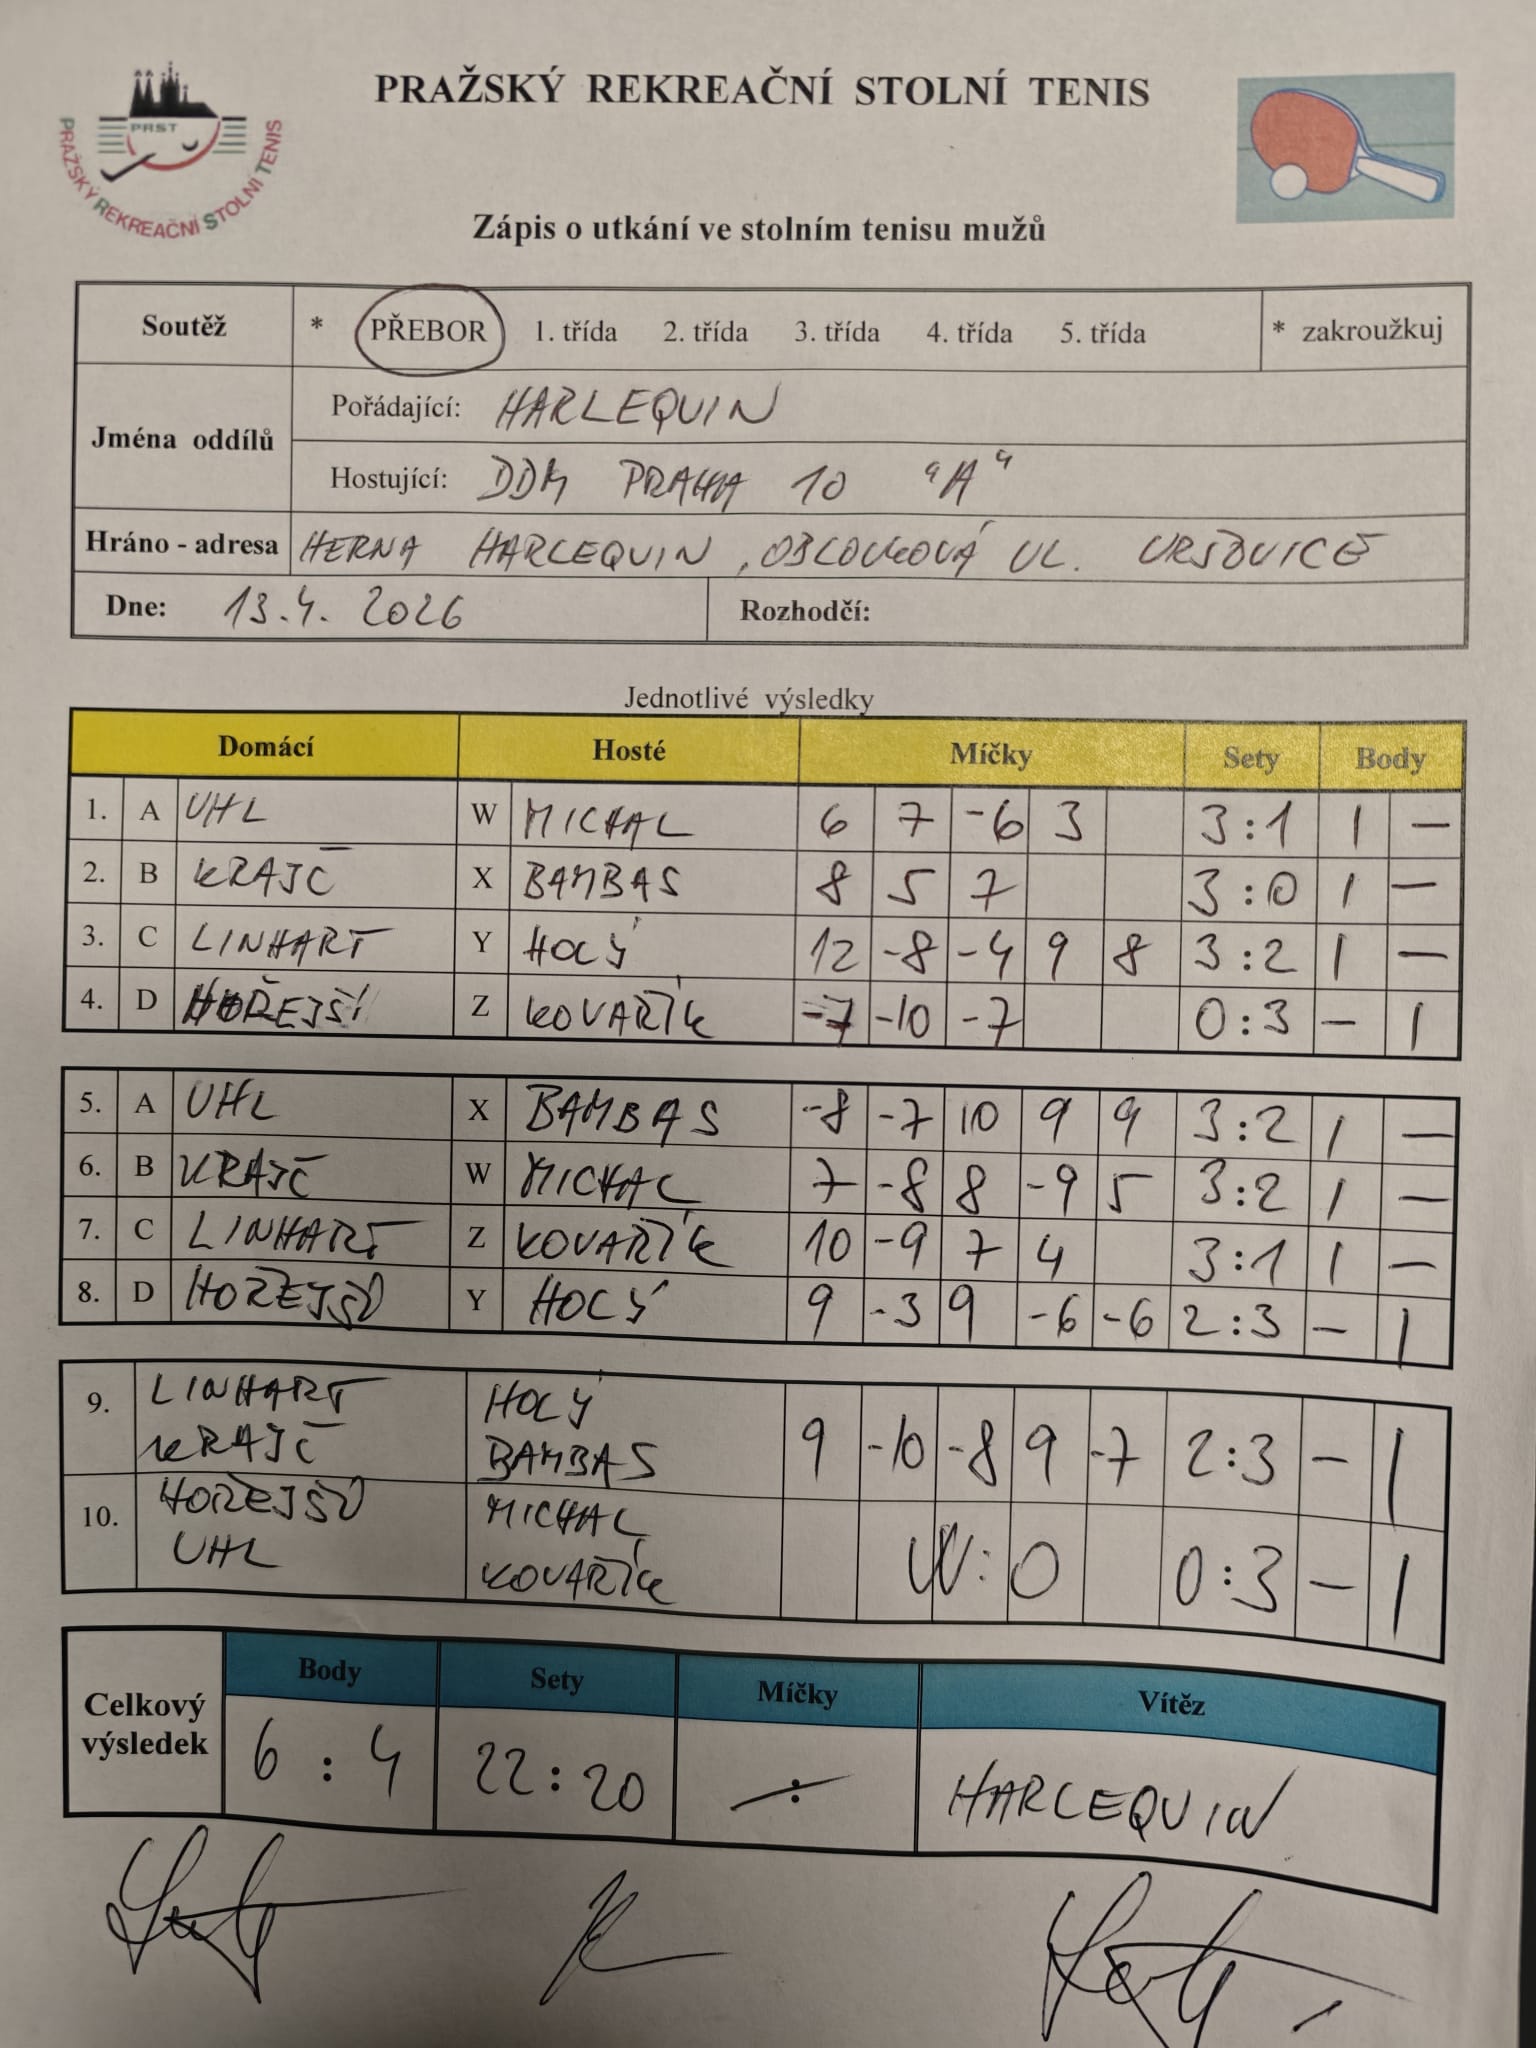 PRAŽSKÝ REKREAČNÍ STOLNÍ TENIS
PRST
PRAŽSKÝ REKREAČNÍ STOLNÍ TENIS
Zápis o utkání ve stolním tenisu mužů
Soutěž * PŘEBOR 1. třída 2. třída 3. třída 4. třída 5. třída * zakroužkuj
Jména oddílů
Pořádající: HARLEQUIN
Hostující: DDM PRAHA 10 "A"
Hráno - adresa HERNA HARLEQUIN, OBLOUKOVÁ UL. VRŠOVICE
Dne: 13.4. 2026 Rozhodčí:
Jednotlivé výsledky
Domácí Hosté Míčky Sety Body
1. A UHL W MICHAL 6 7 -6 3 3:1 1 –
2. B KRAJČ X BAMBAS 8 5 7 3:0 1 –
3. C LINHART Y HOLÝ 12 -8 -4 9 8 3:2 1 –
4. D HOŘEJŠÍ Z KOVAŘÍK -7 -10 -7 0:3 – 1
5. A UHL X BAMBAS -8 -7 10 9 9 3:2 1 –
6. B KRAJČ W MICHAL 7 -8 8 -9 5 3:2 1 –
7. C LINHART Z KOVAŘÍK 10 -9 7 4 3:1 1 –
8. D HOŘEJŠÍ Y HOLÝ 9 -3 9 -6 -6 2:3 – 1
9. LINHART HOLÝ 9 -10 -8 9 -7 2:3 – 1
KRAJČ BAMBAS
10. HOŘEJŠÍ MICHAL W:0 0:3 – 1
UHL KOVAŘÍK
Celkový výsledek
Body Sety Míčky Vítěz
6 : 4 22:20 : HARLEQUIN